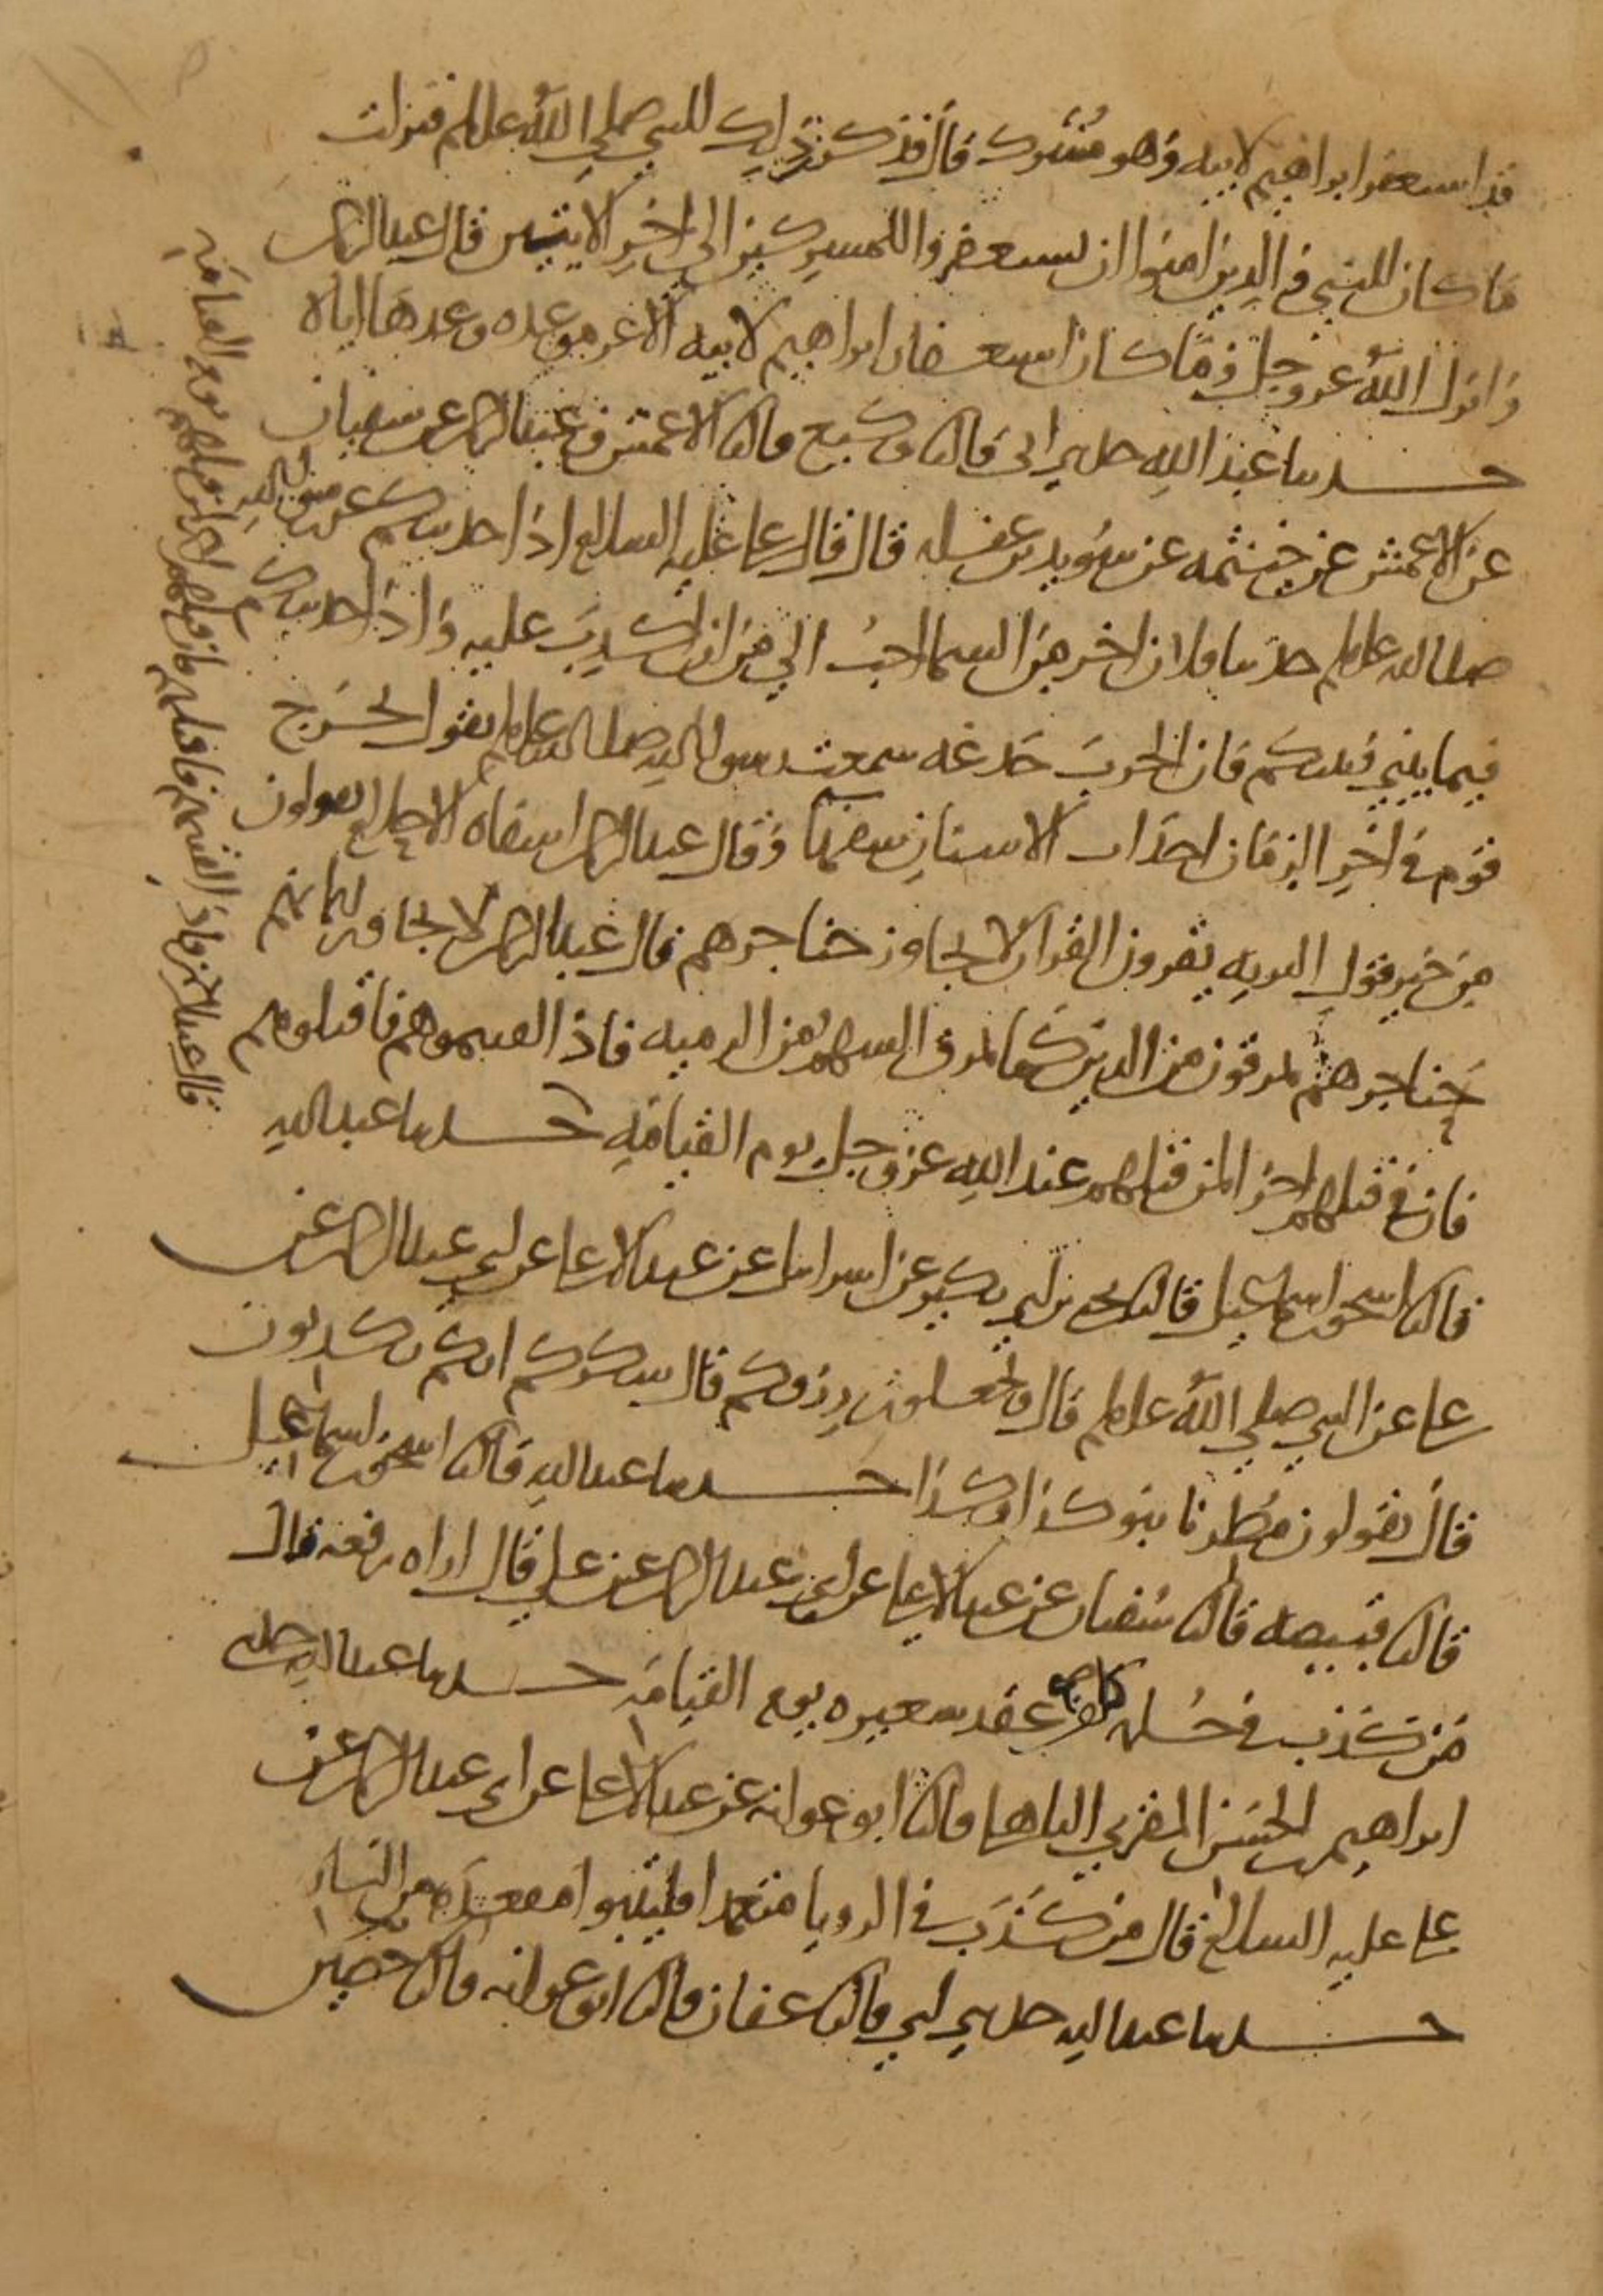 قد استغفر ابراهيم لابيه وهو مشرك قال فذكرت ذلك للنبي صلي الله علىلم فنزلت
ما كان للنبي والذين امنوا ان يستغفروا للمشركين الى اخر الايتين قال عبدالرحمن
وانزل الله عز وجل وما كان استغفار ابراهيم لابيه الا عن موعده وعدها اياه
حدثنا عبد الله حدثني ابي قال ثنا وكيع قال ثنا الاعمش وعبدالرحمن عن سفيان
عن الاعمش عن خيثمه عن سويد بن غفله قال قال على عليه السلام اذا حدثتكم عن رسول الله
صلى الله علىلم حديثا فلان اخر من السما احب الي من ان اكذب عليه واذا حدثتكم
فيما بيني وبينكم فان الحرب خدعه سمعت رسول الله صلى الله علىلم يقول يخرج
قوم في اخر الزمان احداث الاسنان سفها وقال عبدالرحمن اسفاه الاحلام يقولون
من خير قول البريه يقرون القران لا يجاوز حناجرهم قال عبدالرحمن لا يجاوز ايمانهم
حناجرهم يمرقون من الدين كما يمرق السهم من الرميه فاذا لقيتموهم فاقتلوهم
فان في قتلهم اجرا لمن قتلهم عند الله عز وجل يوم القيامه حدثنا عبد الله
قال ثنا اسحق بن اسماعيل قال ثنا يحيى بن ابي بكير عن اسرائيل عن عبد الاعلى عن ابي عبدالرحمن عن
على عن النبي صلي الله علىلم قال وتجعلون رزقكم قال شكركم انكم تكذبون
قال تقولون مطرنا بنو كذا وكذا حدثنا عبد الله قال ثنا اسحق بن اسماعيل
قال ثنا قبيصه قال ثنا سفيان عن عبد الاعلى عن ابي عبد الرحمن عن علي قال اراه رفعه قال
من كذب في حلمه كلف عقد شعيره يوم القيامه حدثنا عبد الله حدثني
ابراهيم بن الحسن المقري الباهلي قال ثنا ابو عوانه عن عبد الاعلى عن ابي عبد الرحمن عن
على عليه السلام قال من كذب في الرويا متعمدا فليتبوا مقعده من النار
حدثنا عبد الله حدثني ابي قال ثنا عفان قال ثنا ابو عوانه قال ثنا حصين
قال عبد الرحمن فاذا لقيتهم فاقتلهم فان قتلهم اجر لمن قتلهم يوم القيامه